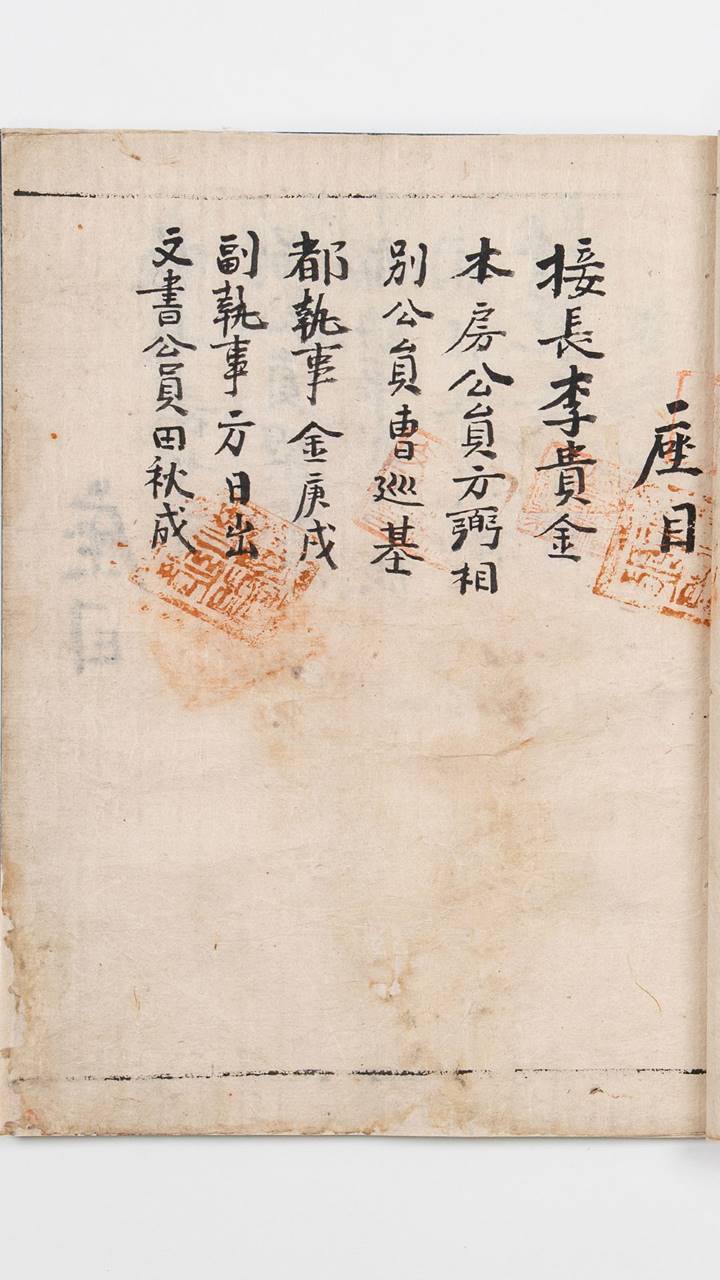 座目
接長李貴金
本房公員方弼相
別公員曹巡基
都執事金庚戌
副執事方日出
文書公員田秋成